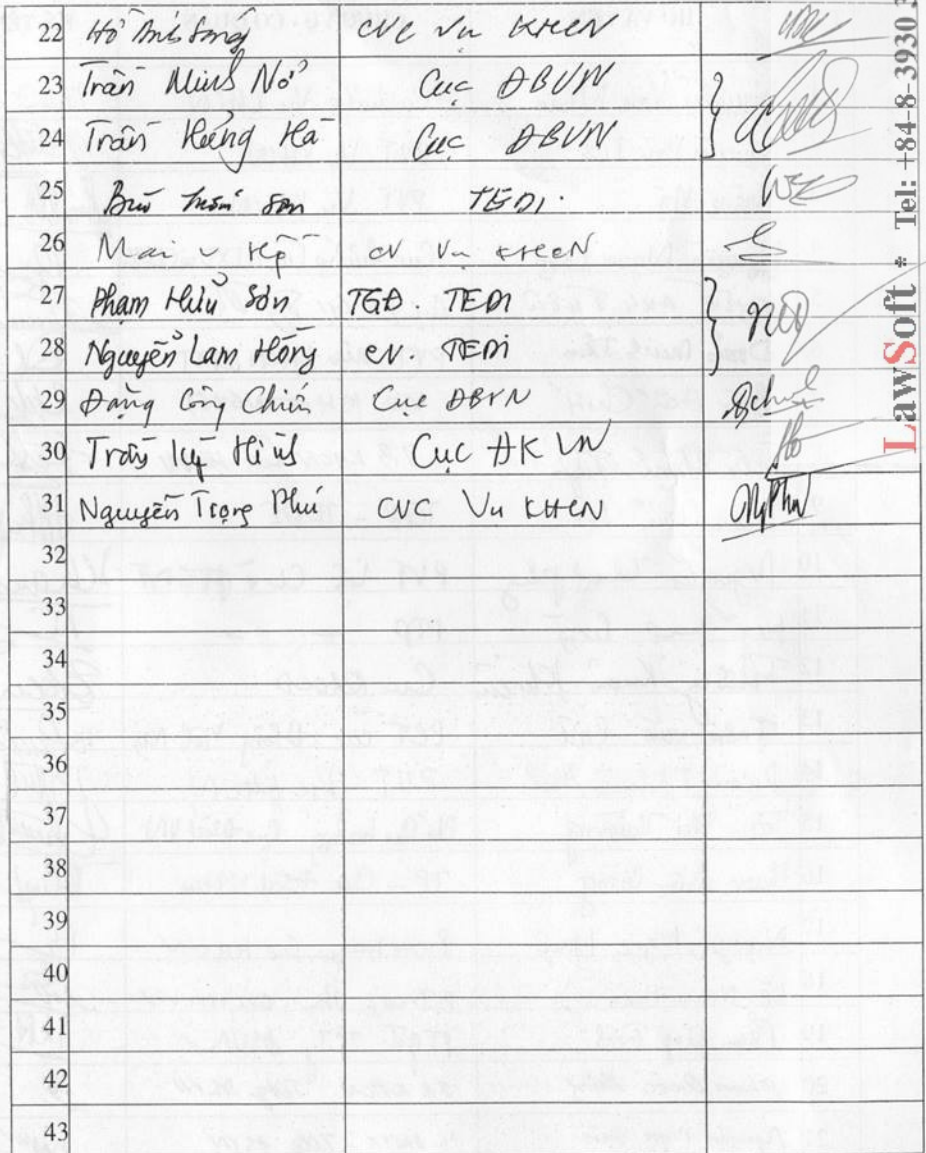 22 Hồ Anh CVC Vụ KHCN
23 Trần Minh Nở Cục ĐBVN
24 Trần Hưng Hà Cục ĐBVN
25 Bùi Sơn TEDI.
26 Mai CV Vụ KHCN
27 Phạm Hữu Sơn TGĐ TEDI
28 Nguyễn Lam Hồng CV TEDI
29 Đặng Công Chiến Cục ĐBVN
30 Trần Cục ĐKVN
31 Nguyễn Trọng Phú CVC Vụ KHCN
32
33
34
35
36
37
38
39
40
41
42
43
LawSoft * Tel: +84-8-3930